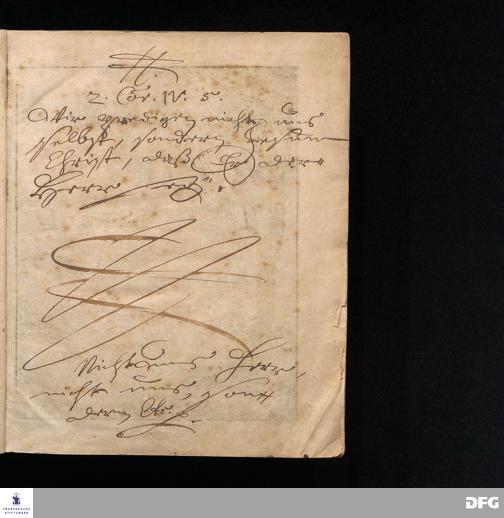 2. Cor. IV. 5.
Wir predigen nicht uns
selbst, sondern Jesum
Christ, daß Er der
Herr sey.
Nicht uns Herr,
nicht uns, son
dern &c.
FRANCKESCHE
STIFTUNGEN
DFG